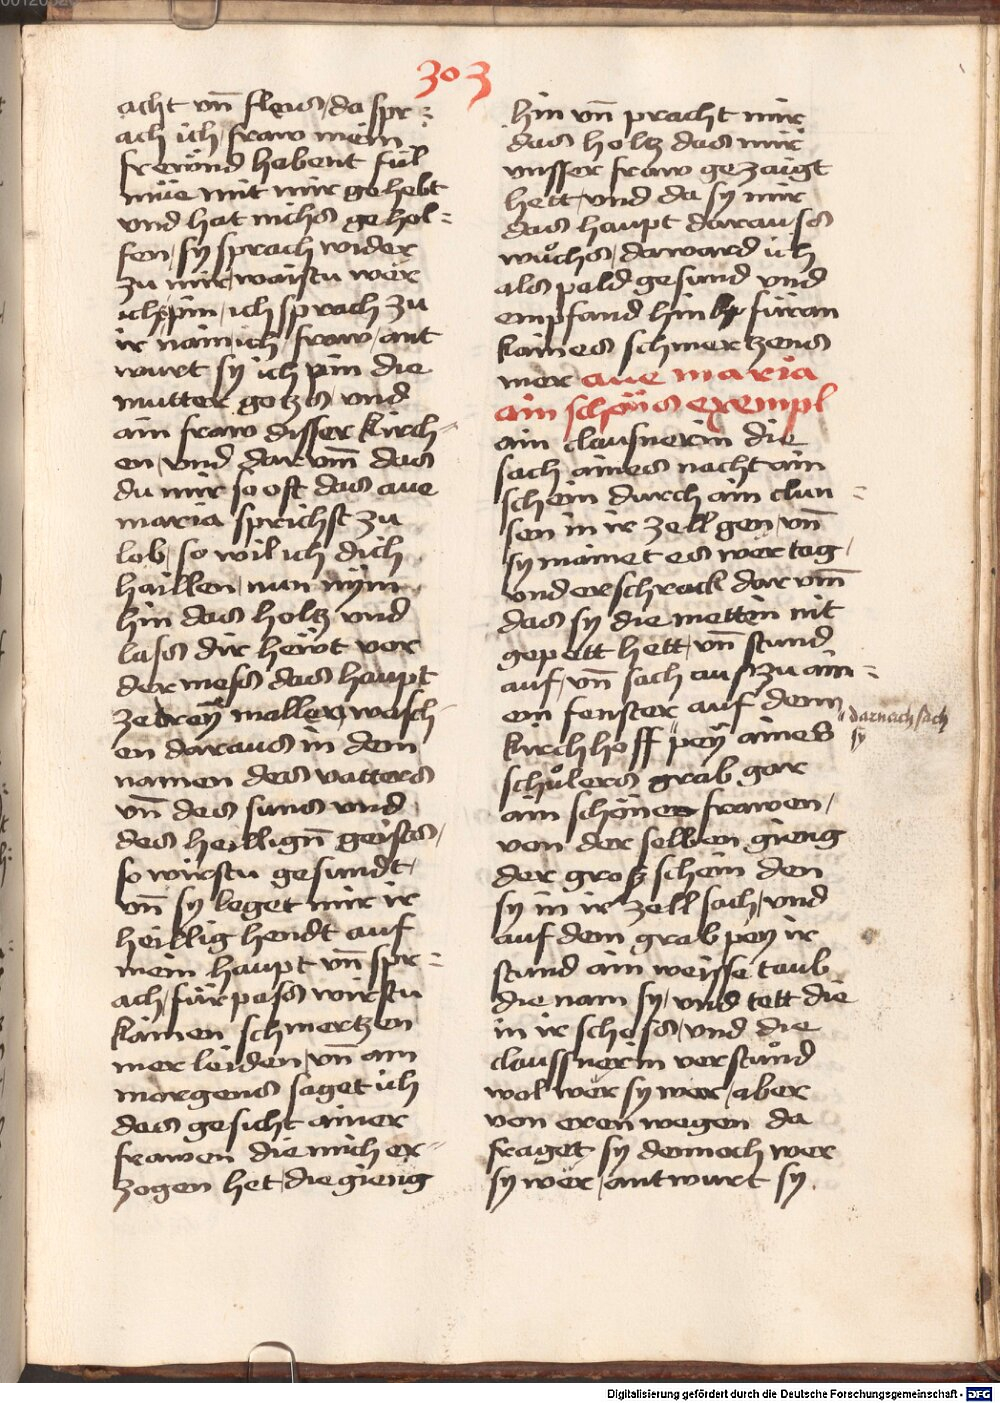 303
acht vn̄ fleus / da spr=
ach ich / fraw mein
frewnd habent fúl
müe mit mir gehebt
vnd hat nichs gehol=
fen / sy sprach wider
zu mir / waistu wer
ich pin / ich sprach zu
ir nain ich fraw / ant
wurt sy ich pin die
mutter gotzs vnd
ain fraw disser kirch=
en / vnd dar vm̄ das
du mir so oft das aue
maria sprichst zu
lob / so wil ich dich
haillen / nun nym
hin das holtz vnd
lass dir hewt vor
der mess das haupt
ze dreÿ mallen wasch=
en daraus in dem
namen des vatters
vn̄ des suns vnd
des heillign̄ geists /
so wirstu gesundt /
vn̄ sy leget mir ir
heillig hendt auf
mein haupt vn̄ spr=
ach / fúrpass wirstu
kainen schmertzen
mer leiden / vn̄ am
morgens saget ich
das gesicht ainer
frawen die mich er=
zogen het / die gieng
hin vn̄ pracht mir
das holtz das mir
vnsser fraw gezaigt
hett / vnd da sy mir
das haupt darauss
wuͦchs / da ward ich
als pald gesund vnd
empfand hin fúran
kaines schmertzens
mer aue maria
ain schöns exempl
ain clausnerin die
sach aines nacht ain
schein durch ain clun=
sen in ir zell gen / vn̄
sy mainet es wer tag /
vnd erschrack dar vm̄
das sy die mettin nit
gepett hett / vn̄ stund
auf / vn̄ sach aus zu ain=
em fenster auf denn
" darnach sach
sy
kirchhoff " peÿ aines
schuͦlers grab gar
ain schöne frawen /
von der selben gieng
der gros schein den
sy in ir zell sach / vnd
auf dem grab pey ir
stund ain weisse taub
die nam sy / vnd tett die
in ir schoss / vnd die
claussnerin verstuͦnd
wol wer sy wer / aber
von eren wegen da
fraget sy dennoch wer
sy wer / antwurt sy
Digitalisierung gefördert durch die Deutsche Forschungsgemeinschaft - DFG